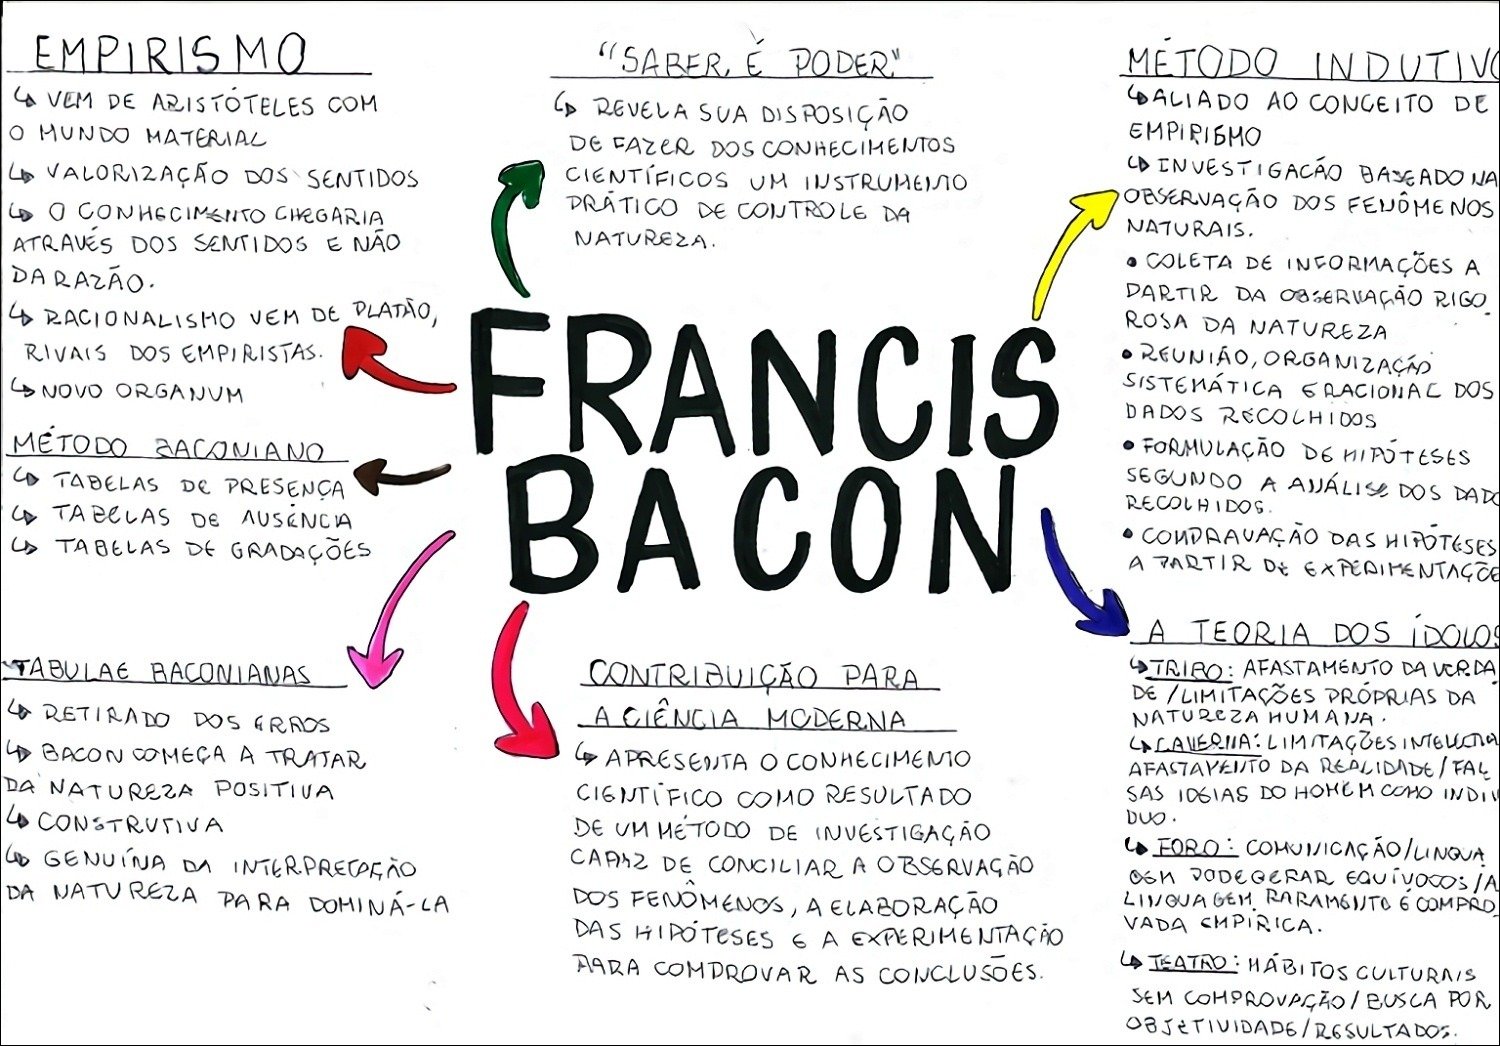 EMPIRISMO
↳ VEM DE ARISTÓTELES COM
O MUNDO MATERIAL
↳ VALORIZAÇÃO DOS SENTIDOS
↳ O CONHECIMENTO CHEGARIA
ATRAVÉS DOS SENTIDOS E NÃO
DA RAZÃO.
↳ RACIONALISMO VEM DE PLATÃO,
RIVAIS DOS EMPIRISTAS.
↳ NOVO ORGANUM
MÉTODO BACONIANO
↳ TABELAS DE PRESENÇA
↳ TABELAS DE AUSÊNCIA
↳ TABELAS DE GRADAÇÕES
TABULAE BACONIANAS
↳ RETIRADO DOS ERROS
↳ BACON COMEÇA A TRATAR
DA NATUREZA POSITIVA
↳ CONSTRUTIVA
↳ GENUÍNA DA INTERPRETAÇÃO
DA NATUREZA PARA DOMINÁ-LA
"SABER, É PODER"
↳ REVELA SUA DISPOSIÇÃO
DE FAZER DOS CONHECIMENTOS
CIENTÍFICOS UM INSTRUMENTO
PRÁTICO DE CONTROLE DA
NATUREZA.
FRANCIS
BACON
CONTRIBUIÇÃO PARA
A CIÊNCIA MODERNA
↳ APRESENTA O CONHECIMENTO
CIENTÍFICO COMO RESULTADO
DE UM MÉTODO DE INVESTIGAÇÃO
CAPAZ DE CONCILIAR A OBSERVAÇÃO
DOS FENÔMENOS, A ELABORAÇÃO
DAS HIPÓTESES E A EXPERIMENTAÇÃO
PARA COMPROVAR AS CONCLUSÕES.
MÉTODO INDUTIVO
↳ ALIADO AO CONCEITO DE
EMPIRISMO
↳ INVESTIGACÃO BASEADO NA
OBSERVAÇÃO DOS FENÔMENOS
NATURAIS.
• COLETA DE INFORMAÇÕES A
PARTIR DA OBSERVAÇÃO RIGO.
ROSA DA NATUREZA
• REUNIÃO, ORGANIZAÇÃO
SISTEMÁTICA E RACIONAL DOS
DADOS RECOLHIDOS
• FORMULAÇÃO DE HIPÓTESES
SEGUNDO A ANÁLISE DOS DADO
RECOLHIDOS.
• COMPRAVAÇÃO DAS HIPÓTESES
A PARTIR DE EXPERIMENTAÇÕE
A TEORIA DOS ÍDOLOS
↳ TRIBO: AFASTAMENTO DA VERDA
DE / LIMITAÇÕES PRÓPRIAS DA
NATUREZA HUMANA.
↳ CAVERNA: LIMITAÇÕES INTELECTUA
AFASTAMENTO DA REALIDADE / FAL
SAS IDEIAS DO HOMEM COMO INDIVI
DUO.
↳ FORO: COMUNICAÇÃO / LINGUA
GEM PODE GERAR EQUÍVOCOS / A
LINGUAGEM RARAMENTE É COMPRO_
VADA EMPÍRICA.
↳ TEATRO: HÁBITOS CULTURAIS
SEM COMPROVAÇÃO / BUSCA POR
OBJETIVIDADE / RESULTADOS.